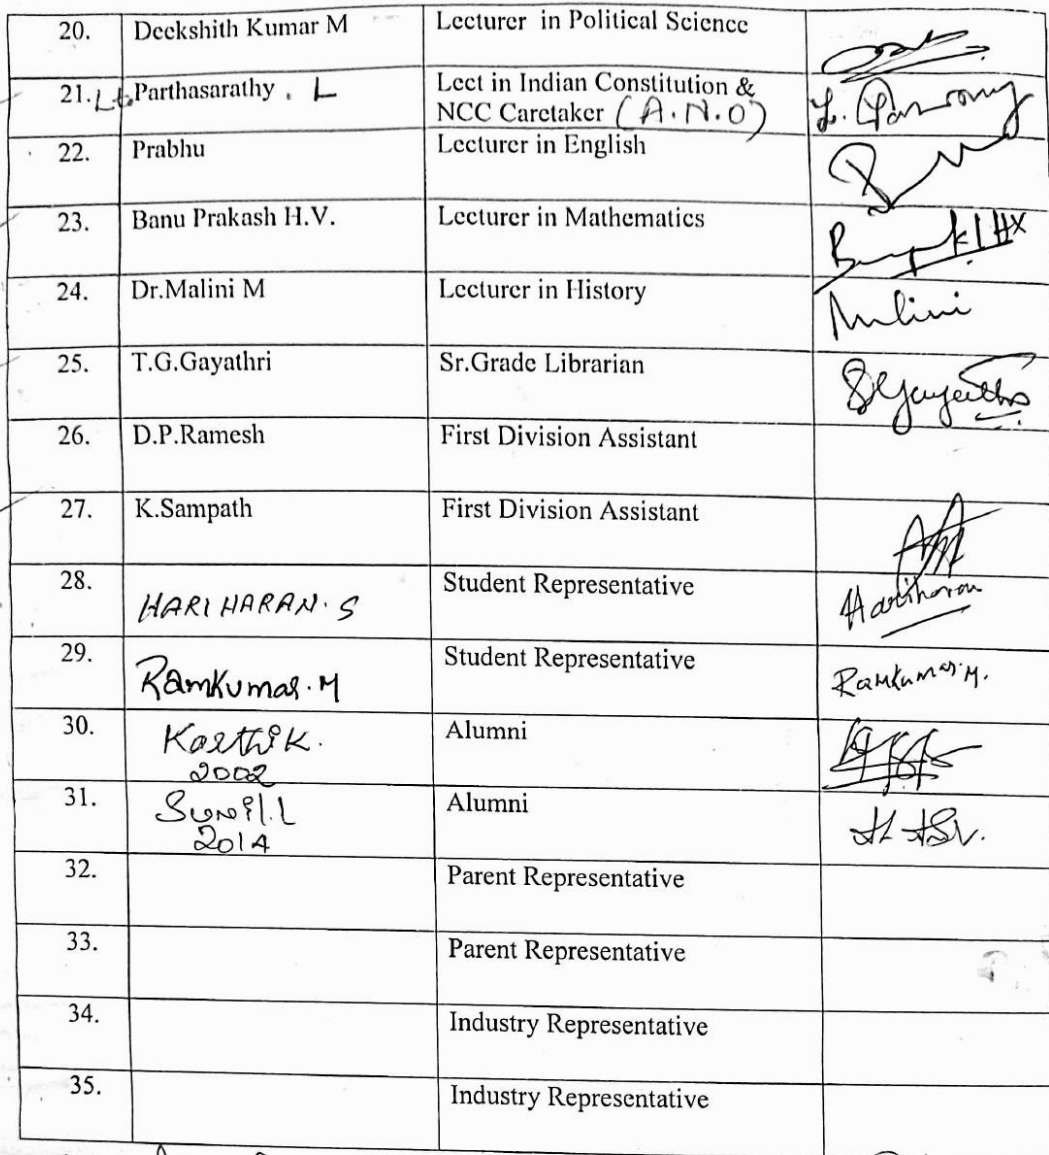 20. Deekshith Kumar M Lecturer in Political Science
21. Lt. Parthasarathy . L Lect in Indian Constitution &
NCC Caretaker (A.N.O)
22. Prabhu Lecturer in English
23. Banu Prakash H.V. Lecturer in Mathematics
24. Dr.Malini M Lecturer in History Malini
25. T.G.Gayathri Sr.Grade Librarian
26. D.P.Ramesh First Division Assistant
27. K.Sampath First Division Assistant
28. HARIHARAN. S Student Representative Hariharan
29. Ramkumar. M Student Representative Ramkumar. M.
30. Karthik. Alumni
2002
31. Sunil. L Alumni
2014
32. Parent Representative
33. Parent Representative
34. Industry Representative
35. Industry Representative